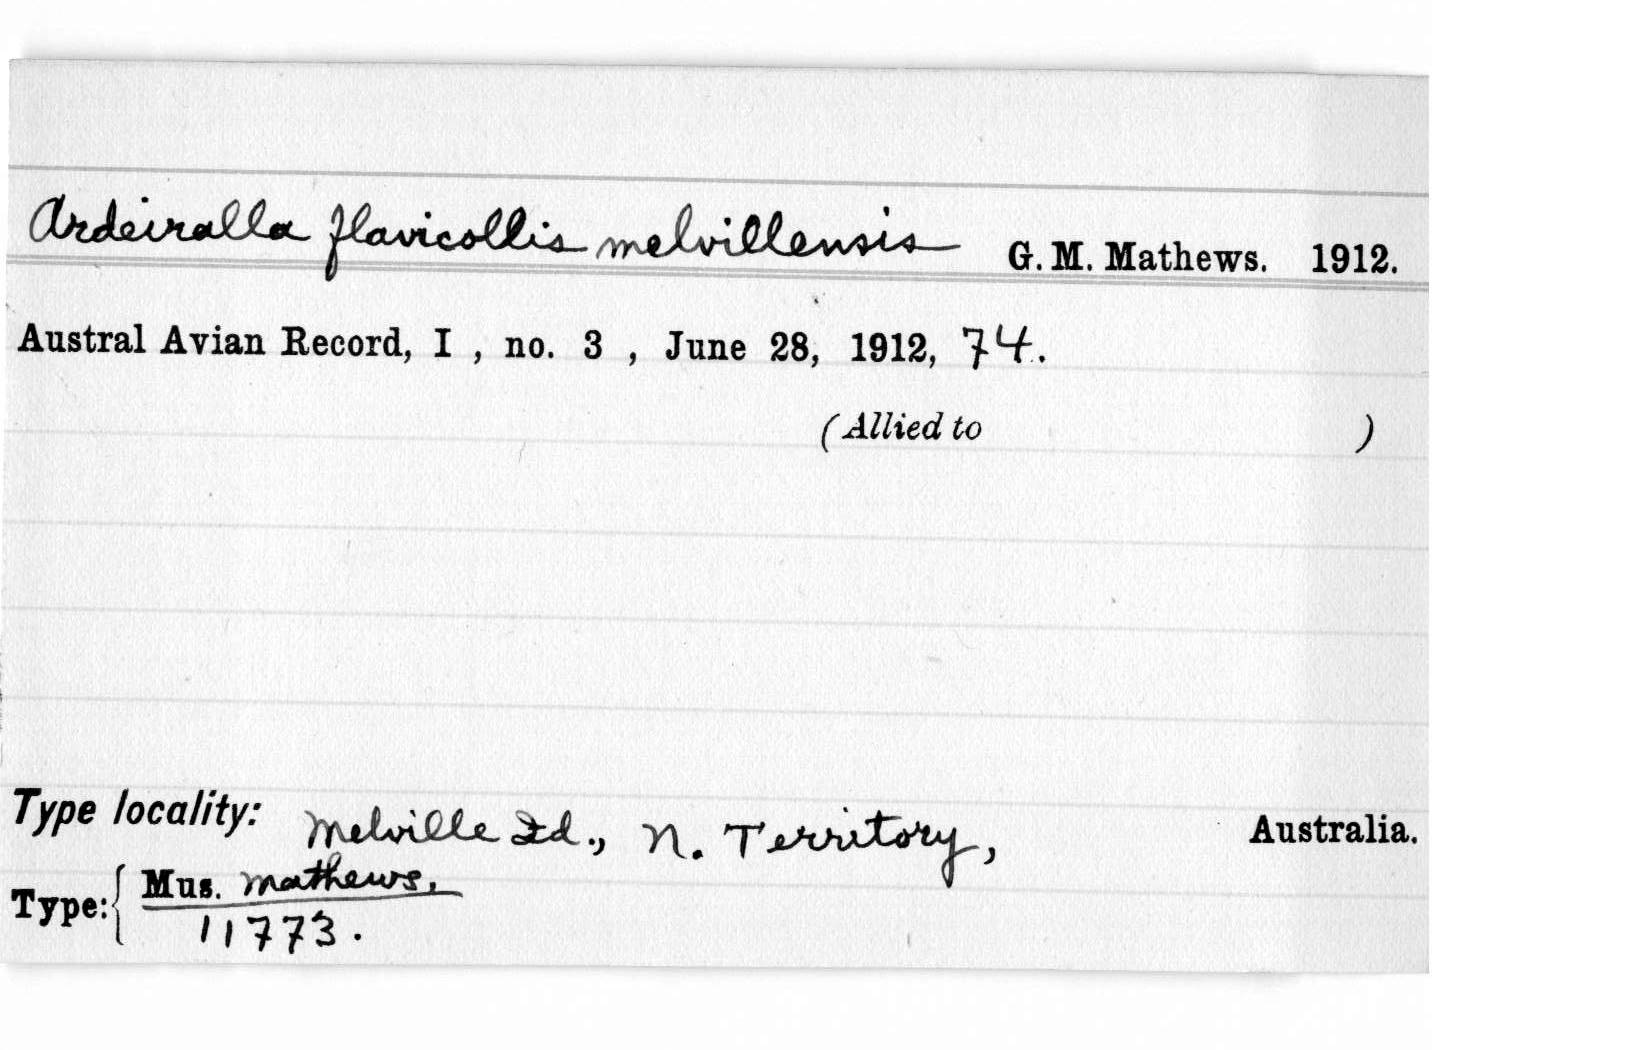 Ardeiralla flavicollis melvillensis G. M. Mathews. 1912.
Austral Avian Record, I , no. 3 , June 28, 1912, 74.
(Allied to )
Type locality: Melville Id., N. Territory, Australia.
Type: { Mus. Mathews.
11773.